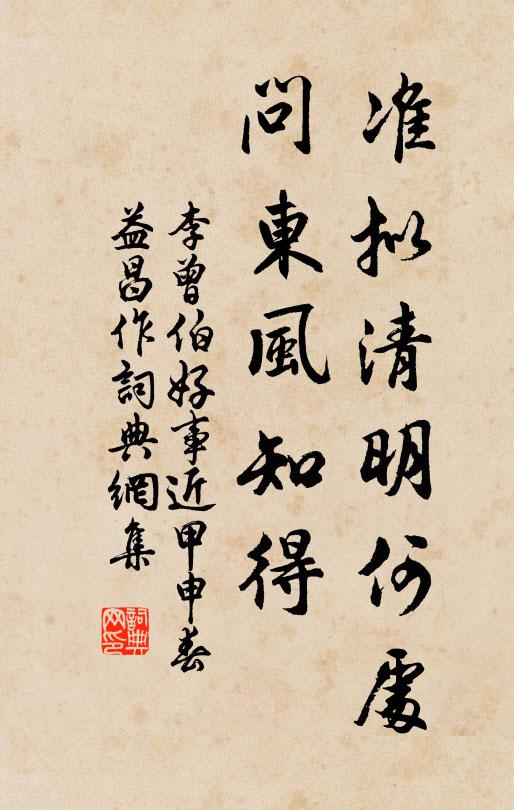 准拟清明何處
問東風知得
李曾伯好事近甲申春
益昌作詞典網集
詞典网印